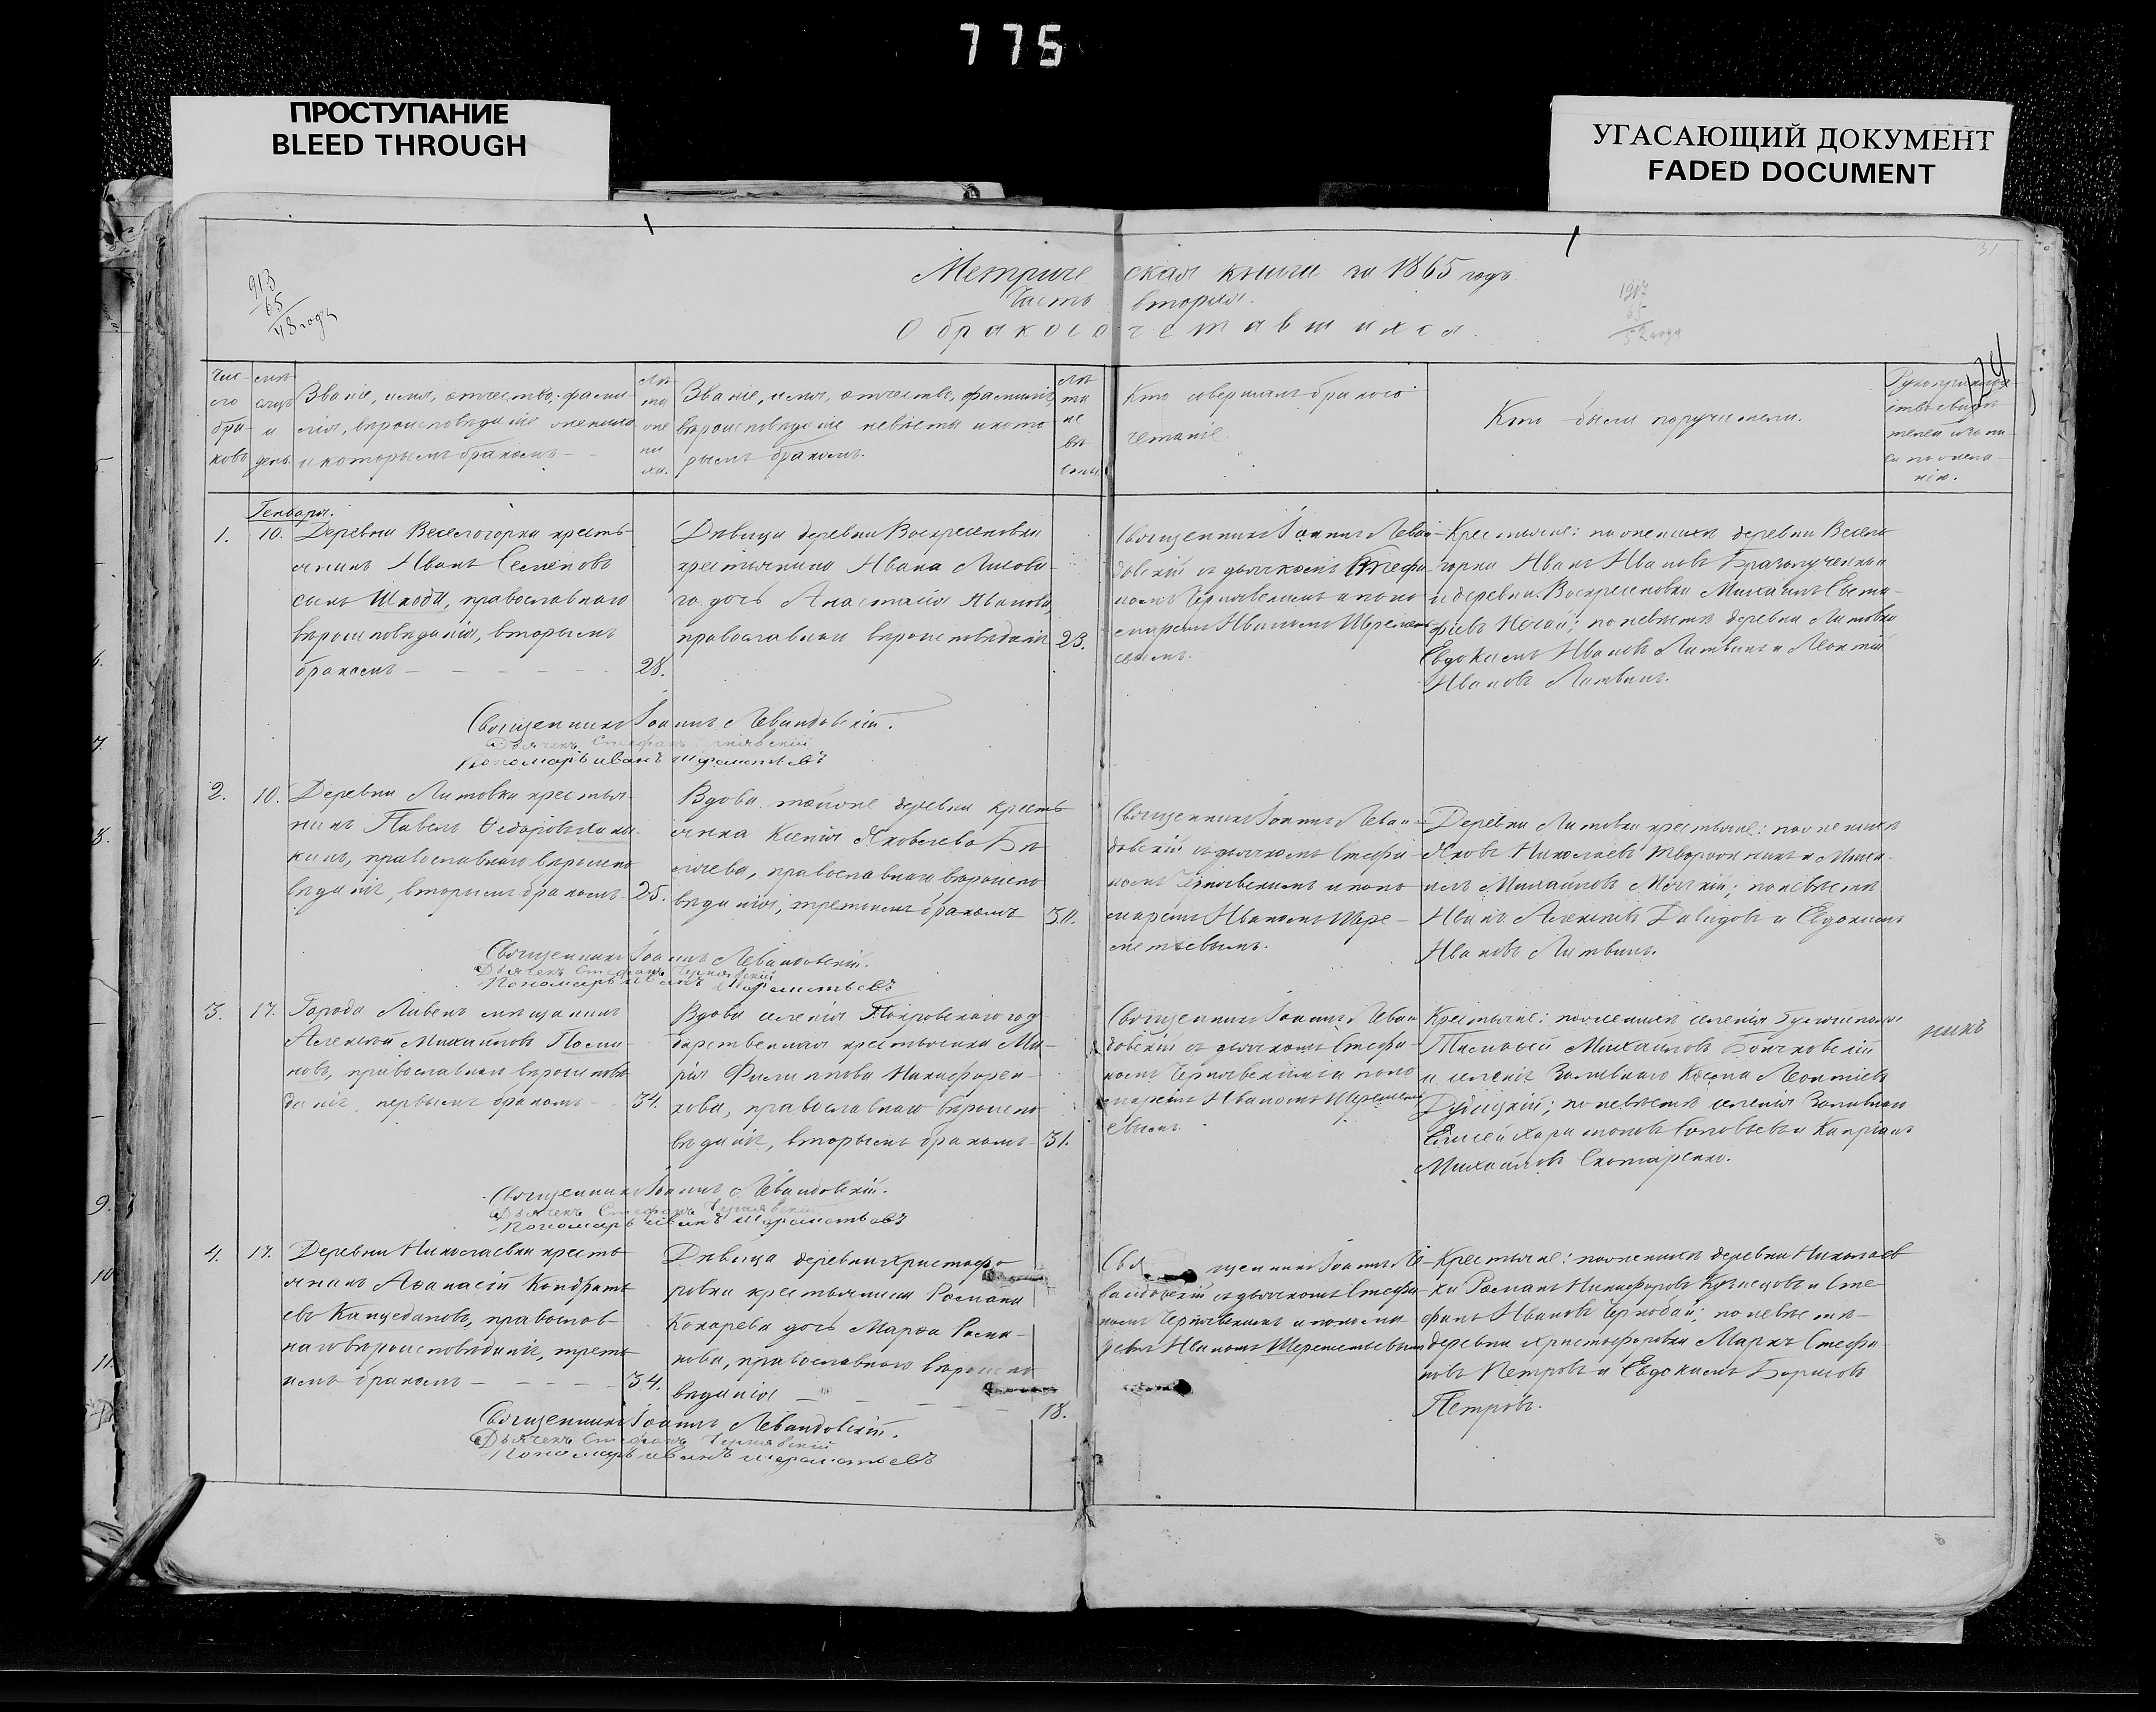 775
ПРОСТУПАНИЕ
BLEED THROUGH
УГАСАЮЩИЙ ДОКУМЕНТ
FADED DOCUMENT
Метрическая книга за 1865 годъ
Часть вторая.
О бракосочетавшихся.
913
65
48 года
1917
65
52 года
31
Число браковъ
мѣсяцъ и день.
Званіе, имя, отчество, фами-
лія, вѣроисповѣданіе жениха
и которымъ бракомъ
лѣта жениха.
Званіе, имя, отчество, фамилія,
вѣроисповѣданіе невѣсты и кото
рымъ бракомъ.
лѣта невѣсты
Кто совершалъ бракосо
четаніе.
Кто были поручители.
Генваря.
1.
10.
Деревни Веселогорки кресть-
янинъ Иванъ Семеновъ
сынъ Шкода, православнаго
вѣроисповѣданія, вторымъ
бракомъ
28.
Дѣвица деревни Воскресеновки
крестьянина Ивана Лисова-
го дочь Анастасія Иванова,
православнаго вѣроисповѣданія
23.
Священникъ Іоаннъ Леван-
довскій съ дьячкомъ Стефа
номъ Чернявскимъ и поно
маремъ Иваномъ Шереметь
евымъ.
Крестьяне: по женихѣ деревни Весело
горки Иванъ Ивановъ
и деревни Воскресеновки Михаилъ Евста-
фіевъ Нечай; по невѣстѣ деревни Литовки
Евдокимъ Ивановъ Литвинъ и Леонтій
Ивановъ Литвинъ.
Священникъ Іоаннъ Левандовскій.
Дьячекъ Стефанъ Чернявскій
Пономарь иванъ шереметьевъ
2.
10.
Деревни Литовки крестья-
нинъ Павелъ Ѳедоровъ
православнаго вѣроиспо
вѣданія, вторымъ бракомъ
25.
Вдова тойже деревни кресть
янка Ксенія Яковлева
православнаго вѣроиспо
вѣданія, третьимъ бракомъ
30.
Священникъ Іоаннъ Леван-
довскій съ дьячкомъ Стефа-
номъ Чернявскимъ и поно
маремъ Иваномъ Шере-
метьевымъ.
Деревни Литовки крестьяне: по женихѣ
Яковъ Николаевъ и Миха-
илъ Михайловъ по невѣстѣ
Иванъ Алексѣевъ Давидовъ и Евдокимъ
Ивановъ Литвинъ.
Священникъ Іоаннъ Левандовскій.
Дьячекъ Стефанъ Чернявскій
Пономарь иванъ шереметьевъ
3.
17.
Города Ливенъ мѣщанинъ
Алексѣй Михайловъ
православнаго вѣроисповѣ
данія, первымъ бракомъ
34.
Вдова селенія Покровскаго госу
дарственная крестьянка Ма-
рія Филиппова Никифорен-
кова, православнаго вѣроиспо
вѣданія, вторымъ бракомъ
31.
Священникъ Іоаннъ Леван
довскій съ дьячкомъ Стефа-
номъ Чернявскимъ и поно
маремъ Иваномъ Шереметь
евымъ.
Крестьяне: по женихѣ селенія
Михаиловъ
и селенія Заливнаго Косма Леонтіевъ
по невѣстѣ селенія Заливнаго
Елисей Харитоновъ Соловьевъ и Капріанъ
Михайловъ Скотаренко.
Священникъ Іоаннъ Левандовскій.
Дьячекъ Стефанъ Чернявскій
Пономарь иванъ шереметьевъ
4.
17.
Деревни Николаевки кресть
янинъ Аѳанасій Кондрать
евъ православ-
наго вѣроисповѣданія, треть
имъ бракомъ
34.
Дѣвица деревни Христофо
ровки крестьянина Романа
Кохарева дочь Марѳа Рома-
нова, православнаго вѣроиспо
вѣданія
18.
Священникъ Іоаннъ Ле-
вандовскій съ дьячкомъ Стефа
номъ Чернявскимъ и понома
ремъ Иваномъ Шереметьевымъ
Крестьяне: по женихѣ деревни Николаев
ки Романъ Никифоровъ Кузнецовъ и Сте-
фанъ Ивановъ по невѣстѣ
деревни Христофоровки Маркъ Стефа
новъ Петровъ и Евдокимъ Борисовъ
Петровъ.
Священникъ Іоаннъ Левандовскій.
Дьячекъ Стефанъ Чернявскій
Пономарь иванъ шереметьевъ